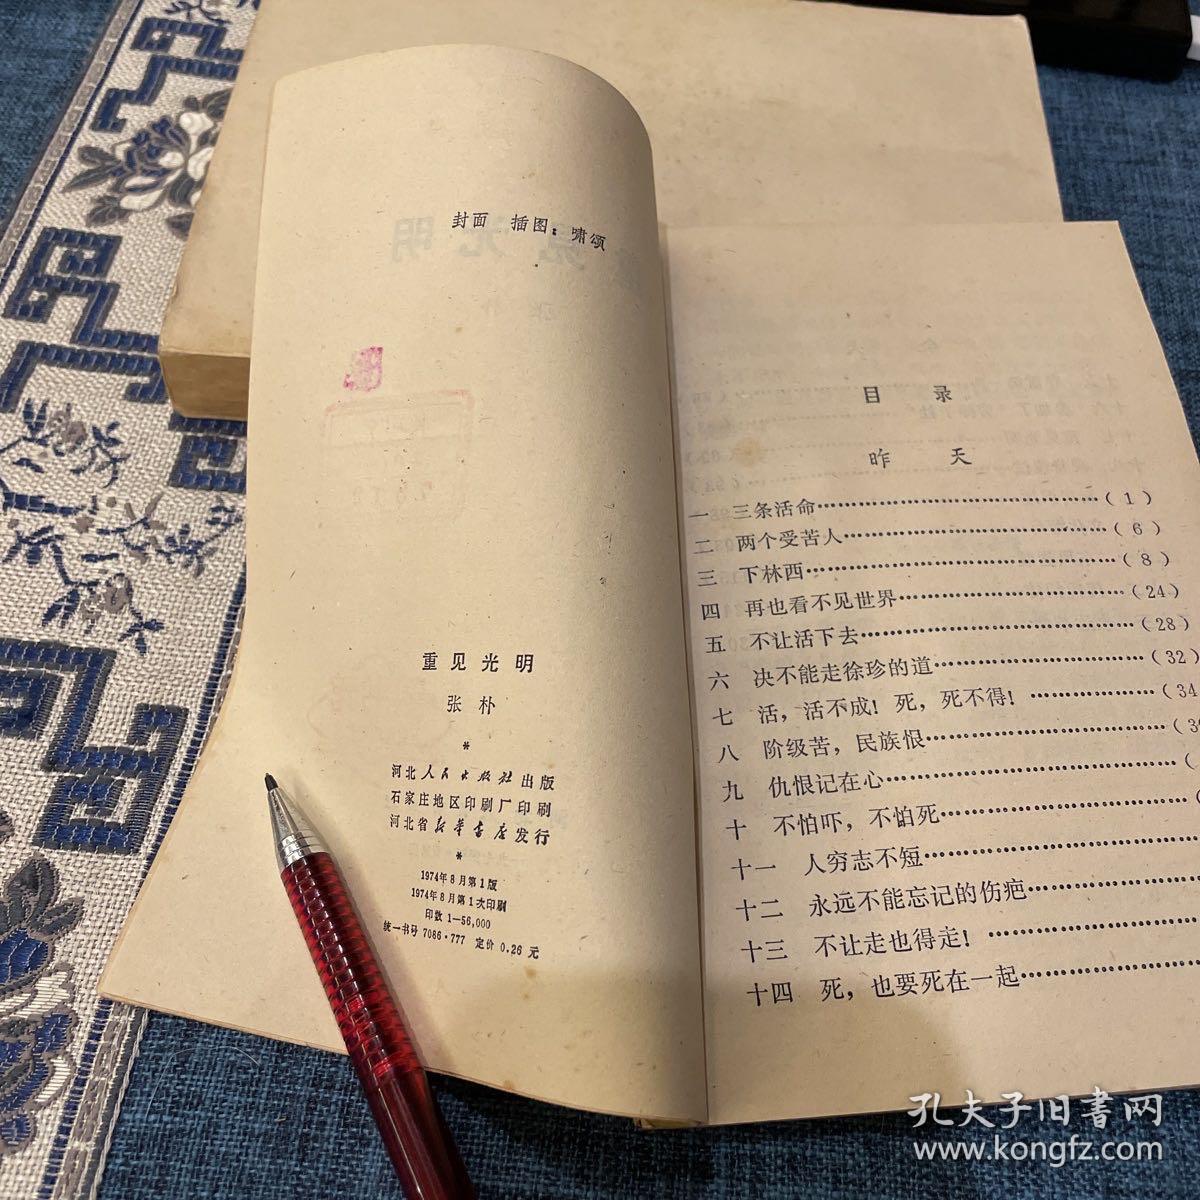 封面 插图：啸颂
重见光明
张朴
*
河北人民出版社出版
石家庄地区印刷厂印刷
河北省新华书店发行
*
1974年8月第1版
1974年8月第1次印刷
印数 1—56,000
统一书号 7086·777 定价 0.26 元
目录
昨天
一 三条活命……………………………(1)
二 两个受苦人……………………………(6)
三 下林西……………………………(8)
四 再也看不见世界……………………(24)
五 不让活下去……………………………(28)
六 决不能走徐珍的道……………………(32)
七 活，活不成！死，死不得！……………(34
八 阶级苦，民族恨……………………(3
九 仇恨记在心……………………………(
十 不怕吓，不怕死……………………………(
十一 人穷志不短……………………………
十二 永远不能忘记的伤疤………………
十三 不让走也得走！……………………
十四 死，也要死在一起………………
孔夫子旧书网
www.kongfz.com